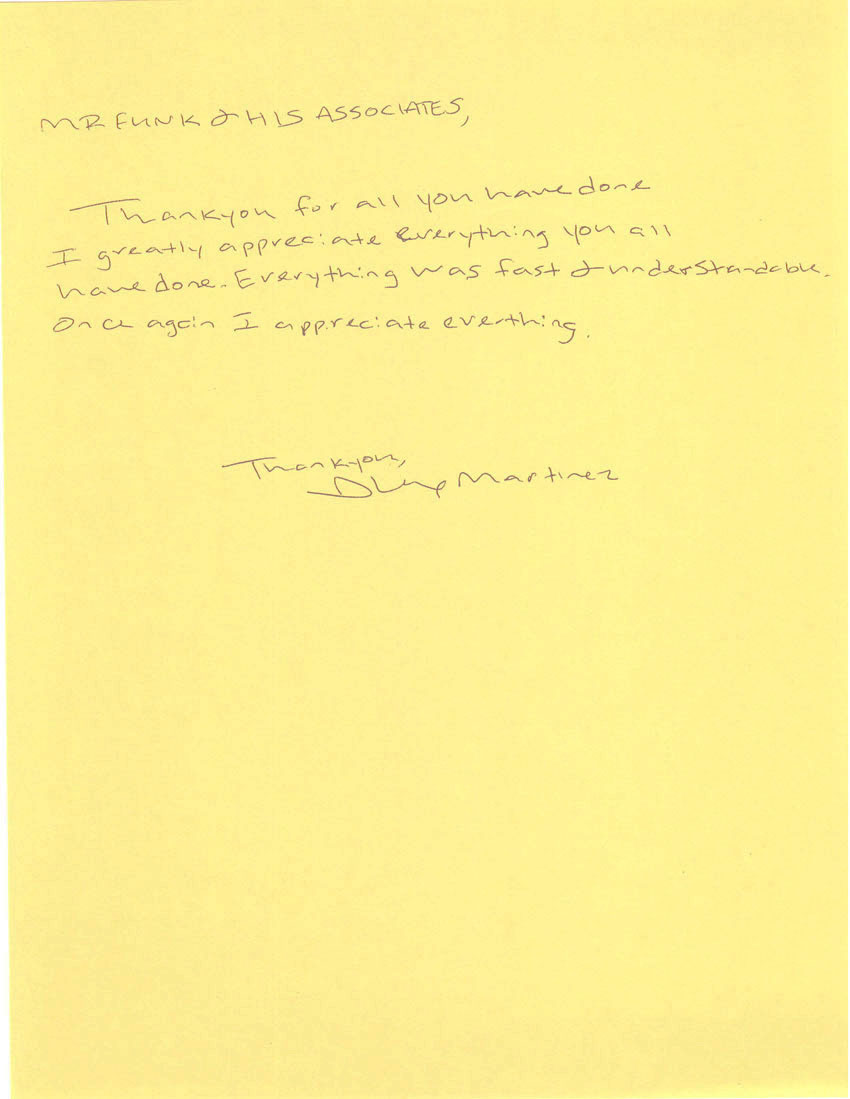 MR FUNK & HIS ASSOCIATES,
Thankyou for all you have done
I greatly appreciate everything you all
have done. Everything was fast & understandable.
Once again I appreciate everthing.
Thankyou,
Martinez